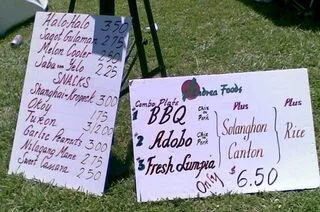 Halo Halo 3.50
Sagot Gulaman 2.75
Melon Cooler
Saba con Yelo 2.25
SNACKS
Shanghai-Kropek 3.00
Okoy 1.75
Turon
Garlic Peanuts 3.00
Nilagang Mane 2.75
Sweet Cassava 2.50
Andrea Foods
Combo Plate Plus Plus
1 BBQ Chix or Pork
2 Adobo Chix or Pork
3 Fresh Lumpia
Solanghon
Canton
Rice
Only $6.50